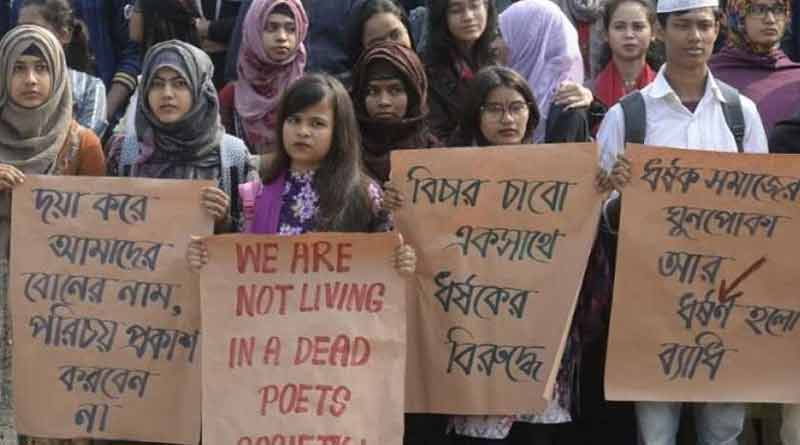 দয়া করে
আমাদের
বোনের নাম,
পরিচয় প্রকাশ
করবেন
না
WE ARE
NOT LIVING
IN A DEAD
POETS
SOCIETY
বিচার চাবো
একসাথে
ধর্ষকের
বিরুদ্ধে
ধর্ষক সমাজের
ঘুনপোকা
আর
ধর্ষণ হলো
ব্যাধি